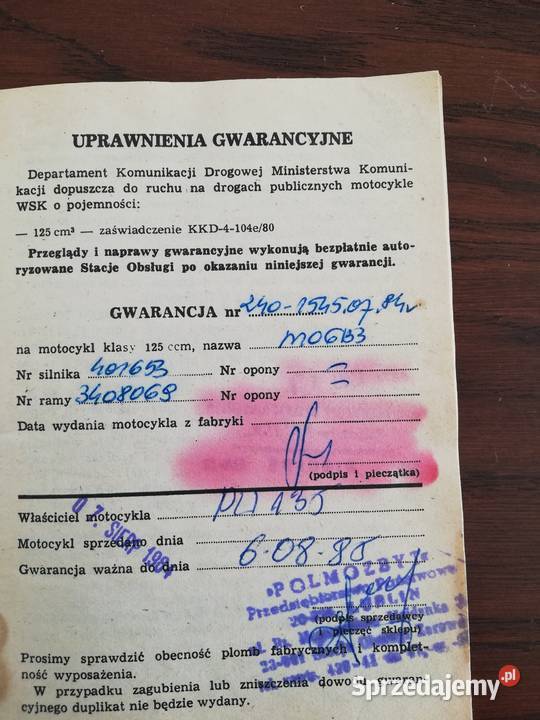 UPRAWNIENIA GWARANCYJNE
Departament Komunikacji Drogowej Ministerstwa Komuni-
kacji dopuszcza do ruchu na drogach publicznych motocykle
WSK o pojemności:
— 125 cm³ — zaświadczenie KKD-4-104e/80
Przeglądy i naprawy gwarancyjne wykonują bezpłatnie auto-
ryzowane Stacje Obsługi po okazaniu niniejszej gwarancji.
GWARANCJA nr 240-1545.07.84r
na motocykl klasy 125 ccm, nazwa M06B3
Nr silnika 401653 Nr opony
Nr ramy 3408069 Nr opony
Data wydania motocykla z fabryki
(podpis i pieczątka)
Właściciel motocykla
Motocykl sprzedano dnia 07. SIERP 1984
Gwarancja ważna do dnia 6.08.85
"POLMOZBYT"
Przedsiębiorstwo
LUBLIN
(podpis sprzedawcy
i pieczęć sklepu)
Prosimy sprawdzić obecność plomb fabrycznych i komplet-
ność wyposażenia.
W przypadku zagubienia lub zniszczenia dowodu gwaran-
cyjnego duplikat nie będzie wydany.
Sprzedajemy.pl